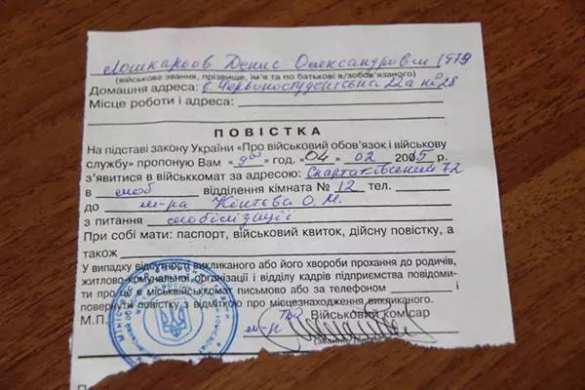 Лошкарьов Денис Олександрович 1979
(військове звання, прізвище, ім'я та по батькові в/зобов'язаного)
Домашня адреса: с. Червоностудентська 22а 28
Місце роботи і адреса:
ПОВІСТКА
На підставі закону України «Про військовий обов'язок і військову
службу» пропоную Вам « » год. 04 02 2015 р.
з'явитися в військкомат за адресою: 72
в моб відділення кімната № 12 тел.
до м-ра О.М.
з питання мобілізації
При собі мати: паспорт, військовий квиток, дійсну повістку, а
також
У випадку відсутності викликаного або його хвороби прохання до родичів,
житлово-комунальної організації і відділу кадрів підприємства повідоми-
ти про це міськвійськкомат письмово або за телефоном і
повернути повістку з відміткою про місцезнаходження викликаного.
М.П. Військовий комісар
м-р